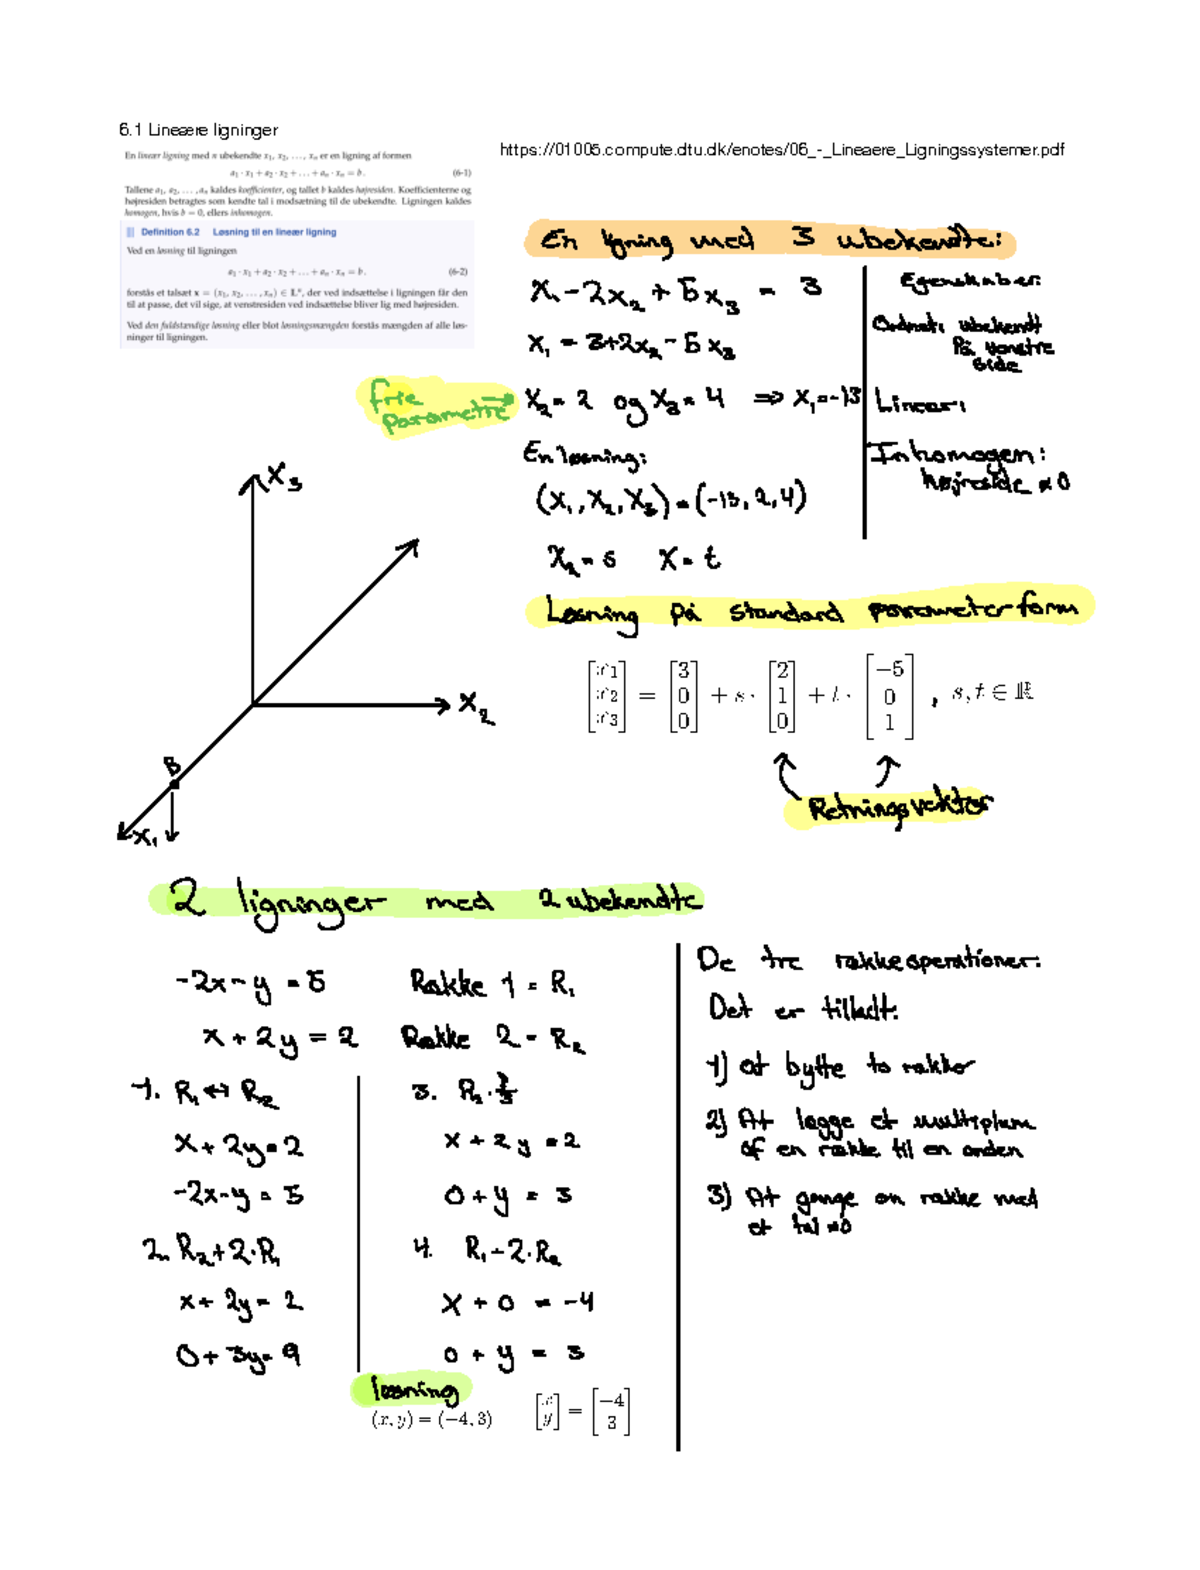 6.1 Lineære ligninger
https://01005.compute.dtu.dk/enotes/06_-_Lineaere_Ligningssystemer.pdf
En lineær ligning med n ubekendte x₁, x₂, …, xₙ er en ligning af formen
a₁ · x₁ + a₂ · x₂ + … + aₙ · xₙ = b. (6-1)
Tallene a₁, a₂, …, aₙ kaldes koefficienter, og tallet b kaldes højresiden. Koefficienterne og
højresiden betragtes som kendte tal i modsætning til de ubekendte. Ligningen kaldes
homogen, hvis b = 0, ellers inhomogen.
Definition 6.2 Løsning til en lineær ligning
Ved en løsning til ligningen
a₁ · x₁ + a₂ · x₂ + … + aₙ · xₙ = b. (6-2)
forstås et talsæt x = (x₁, x₂, …, xₙ) ∈ 𝕃ⁿ, der ved indsættelse i ligningen får den
til at passe, det vil sige, at venstresiden ved indsættelse bliver lig med højresiden.
Ved den fuldstændige løsning eller blot løsningsmængden forstås mængden af alle løs-
ninger til ligningen.
En ligning med 3 ubekendte:
x - 2x₂ + 5x₃ = 3
x₁ = 3+2x₂ - 5x₃
frie parametre → x₂ = 2 og x₃ = 4 ⇒ x₁ = -13
En løsning:
(x₁, x₂, x₃) = (-13, 2, 4)
x₂ = s x = t
Egenskaber:
Ordnet: ubekendt
på venstre
side
Lineær:
Inhomogen:
højreside ≠ 0
x₃
x₂
B
x₁
Løsning på standard parameterform
[x₁ x₂ x₃] = [3 0 0] + s · [2 1 0] + t · [−5 0 1] , s, t ∈ ℝ
Retningsvektor
2 ligninger med 2 ubekendte
-2x - y = 5 Række 1 = R₁
x + 2y = 2 Række 2 = R₂
1. R₁ ↔ R₂
x + 2y = 2
-2x - y = 5
2. R₂ + 2·R₁
x + 2y = 2
0 + 3y = 9
3. R₂ · 1/3
x + 2y = 2
0 + y = 3
4. R₁ - 2·R₂
x + 0 = -4
0 + y = 3
løsning
(x, y) = (−4, 3) [x y] = [−4 3]
De tre rækkeoperationer:
Det er tilladt:
1) at bytte to rækker
2) At lægge et multiplum
af en række til en anden
3) At gange en række med
et tal ≠ 0